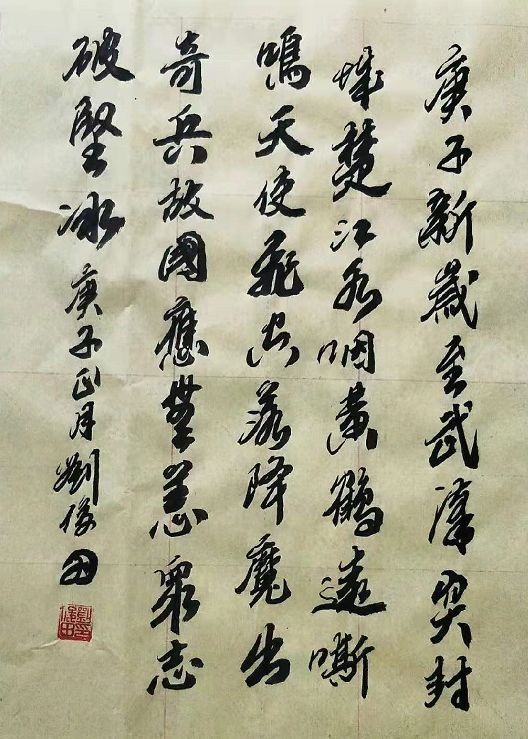 庚子新歲至武漢哭封
城楚江水咽黃鶴遠嘶
鳴天使飛空落降魔出
奇兵故國應無恙眾志
破堅冰庚子正月劉俊田